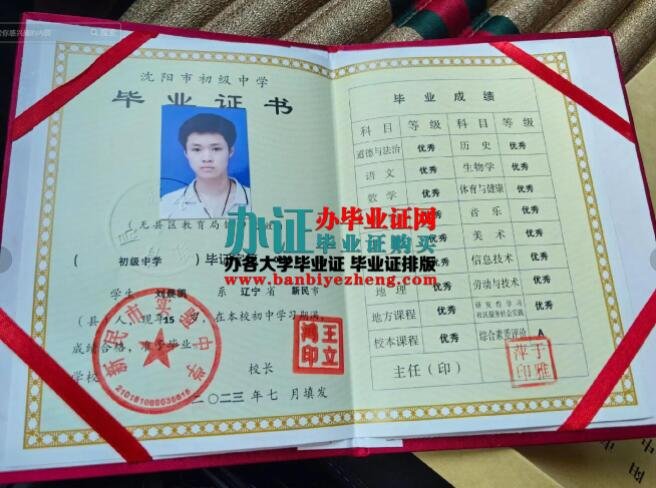 沈阳市初级中学
毕业证书
办证 办毕业证网
毕业证购买
办各大学毕业证 毕业证排版
www.banbiyezheng.com
初级中学
学生 刘晨凯 系 辽宁 省 新民 市
(县)人，现年15岁，在本校初中学习期满，
成绩合格，准予毕业。
学校 校长
王立鸿印
新民市实验中学
二〇二三年七月填发
毕业成绩
科目 等级 科目 等级
道德与法治 优秀 历史 优秀
语文 优秀 生物学 优秀
数学 优秀 体育与健康 优秀
音乐 优秀
美术 优秀
信息技术 优秀
地理 优秀 劳动与技术 优秀
地方课程 优秀 优秀
校本课程 优秀 综合素质评价 A
主任（印）
于雅萍印